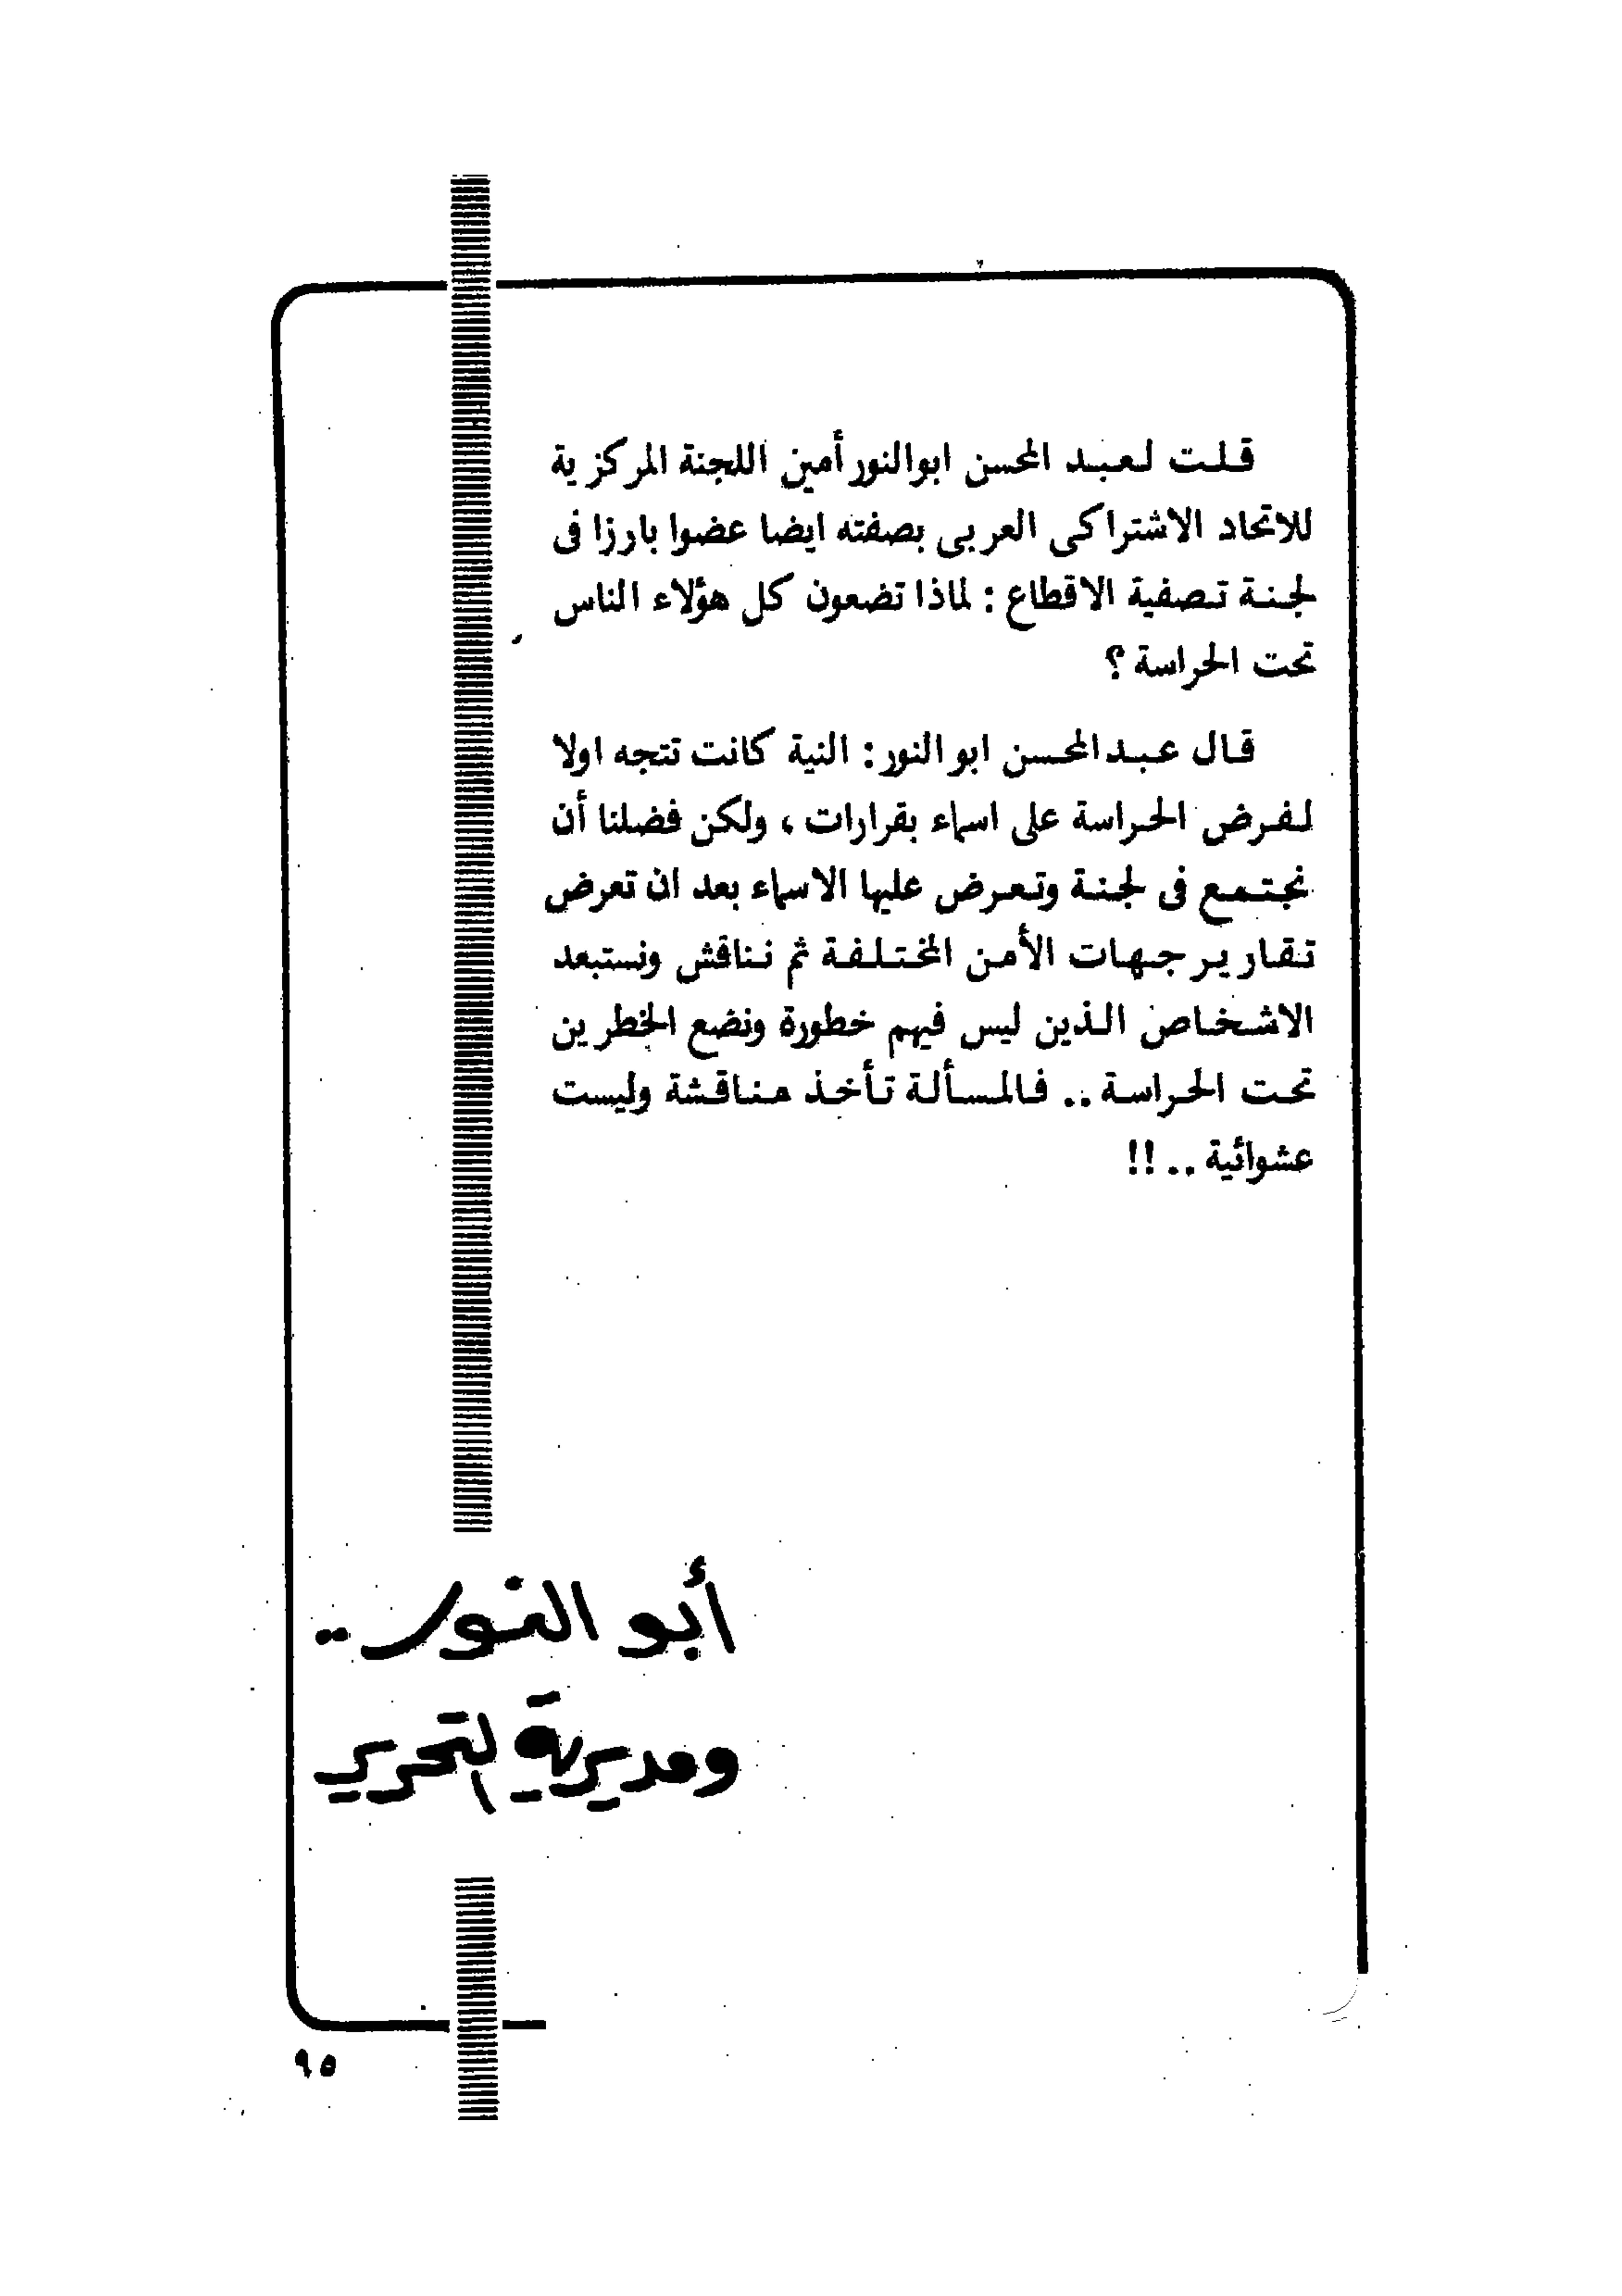 قلت لعبد المحسن ابوالنور أمين اللجنة المركزية
للاتحاد الاشتراكى العربى بصفته ايضا عضوا بارزا فى
لجنة تصفية الاقطاع : لماذا تضعون كل هؤلاء الناس
تحت الحراسة ؟
قال عبدالمحسن ابو النور : النية كانت تتجه اولا
لفرض الحراسة على اسماء بقرارات ، ولكن فضلنا أن
نجتمع فى لجنة وتعرض عليها الاسماء بعد ان تعرض
تقارير جهات الأمن المختلفة ثم نناقش ونستبعد
الاشخاص الذين ليس فيهم خطورة ونضع الخطرين
تحت الحراسة .. فالمسألة تأخذ مناقشة وليست
عشوائية .. !!
أبو النور ..
ومديرية التحرير
٩٥